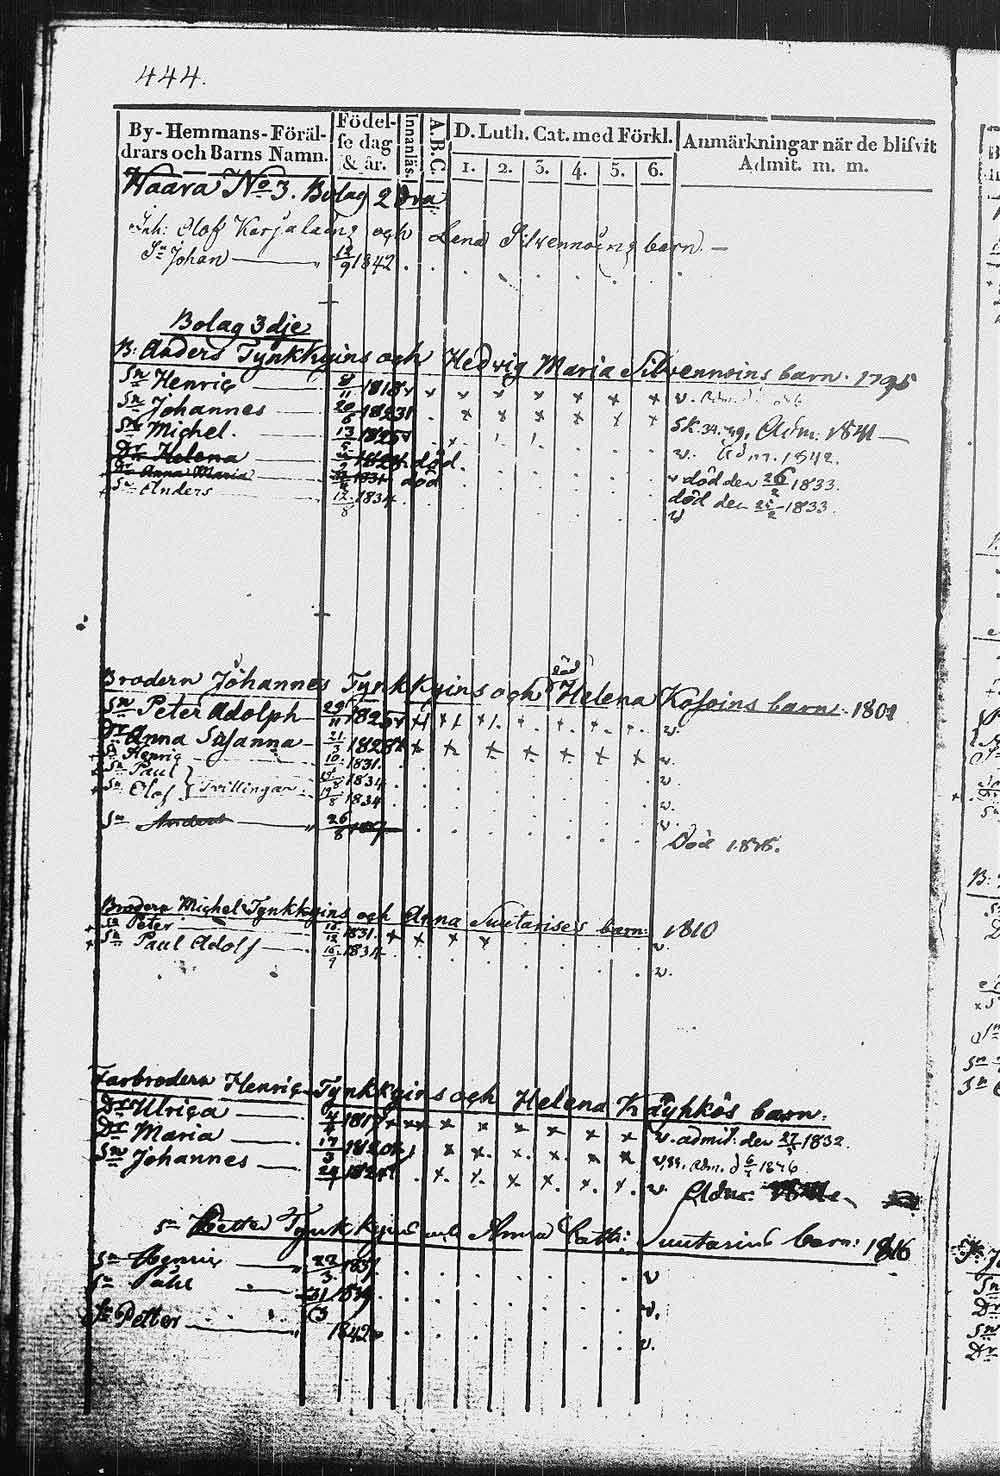 444.
By-Hemmans-Föräl-
drars och Barns Namn.
Födel-
se dag
& år.
Innanläs.
A.B.C.
D. Luth. Cat. med Förkl.
1. 2. 3. 4. 5. 6.
Anmärkningar när de blifvit
Admit. m. m.
Haara No 3. Bolag 2 dra
Inh: Olof Karjalaing och Lena Silvennoing barn. —
Sn Johan 12/9 1842
Bolag 3dje
B: Anders Tynkkyins och Hedvig Maria Silvennoins barn. 1795
Sn Henric 1818 x x x x x x x v.
Sn Johannes 20/6 1823 x x x x x x Sk. Adm: 1841
Sn Michel. 13/5 1825 v. Adm. 1842.
Dr Helena 1828 död v död den 26/2 1833.
Dr Anna Maria 1831 död död den 25/2 1833.
Sn Anders 12/8 1834 v
Brodern Johannes Tynkkyins och död Helena Kosoins barn. 1801
Sn Peter Adolph 29/11 1825 v.
Dr Anna Susanna 21/3 1828 x x x x x x v.
Sn Henric 10 1831. v.
Sn Paul 19/8 1834 v.
Sn Olof } Tvillingar 19/8 1834 v.
Sn Anders 26/8 Död
Brodern Michel Tynkkyins och Anna Suutarises barn: 1810
Sn Peter 15/12 1831. x x x x v.
Sn Paul Adolf 16/9 1834 v.
Farbrodern Henric Tynkkyins och Helena Käyhkös barn.
Dr Ulrica 1817 x x x x x x x v. admit: den 27/5 1832.
Dr Maria 17/3 1820 x x x x x x Adm. d 6/7 1846
Sn Johannes 24/7 182 x x x x x x v Adm:
Sn Petter Tynkkyins och Anna Cath: Suutarins barn: 1816
Sn Henric 22/3 1837. v
Sn Påhl 31/3 1839 v.
Sn Petter 1842 v.